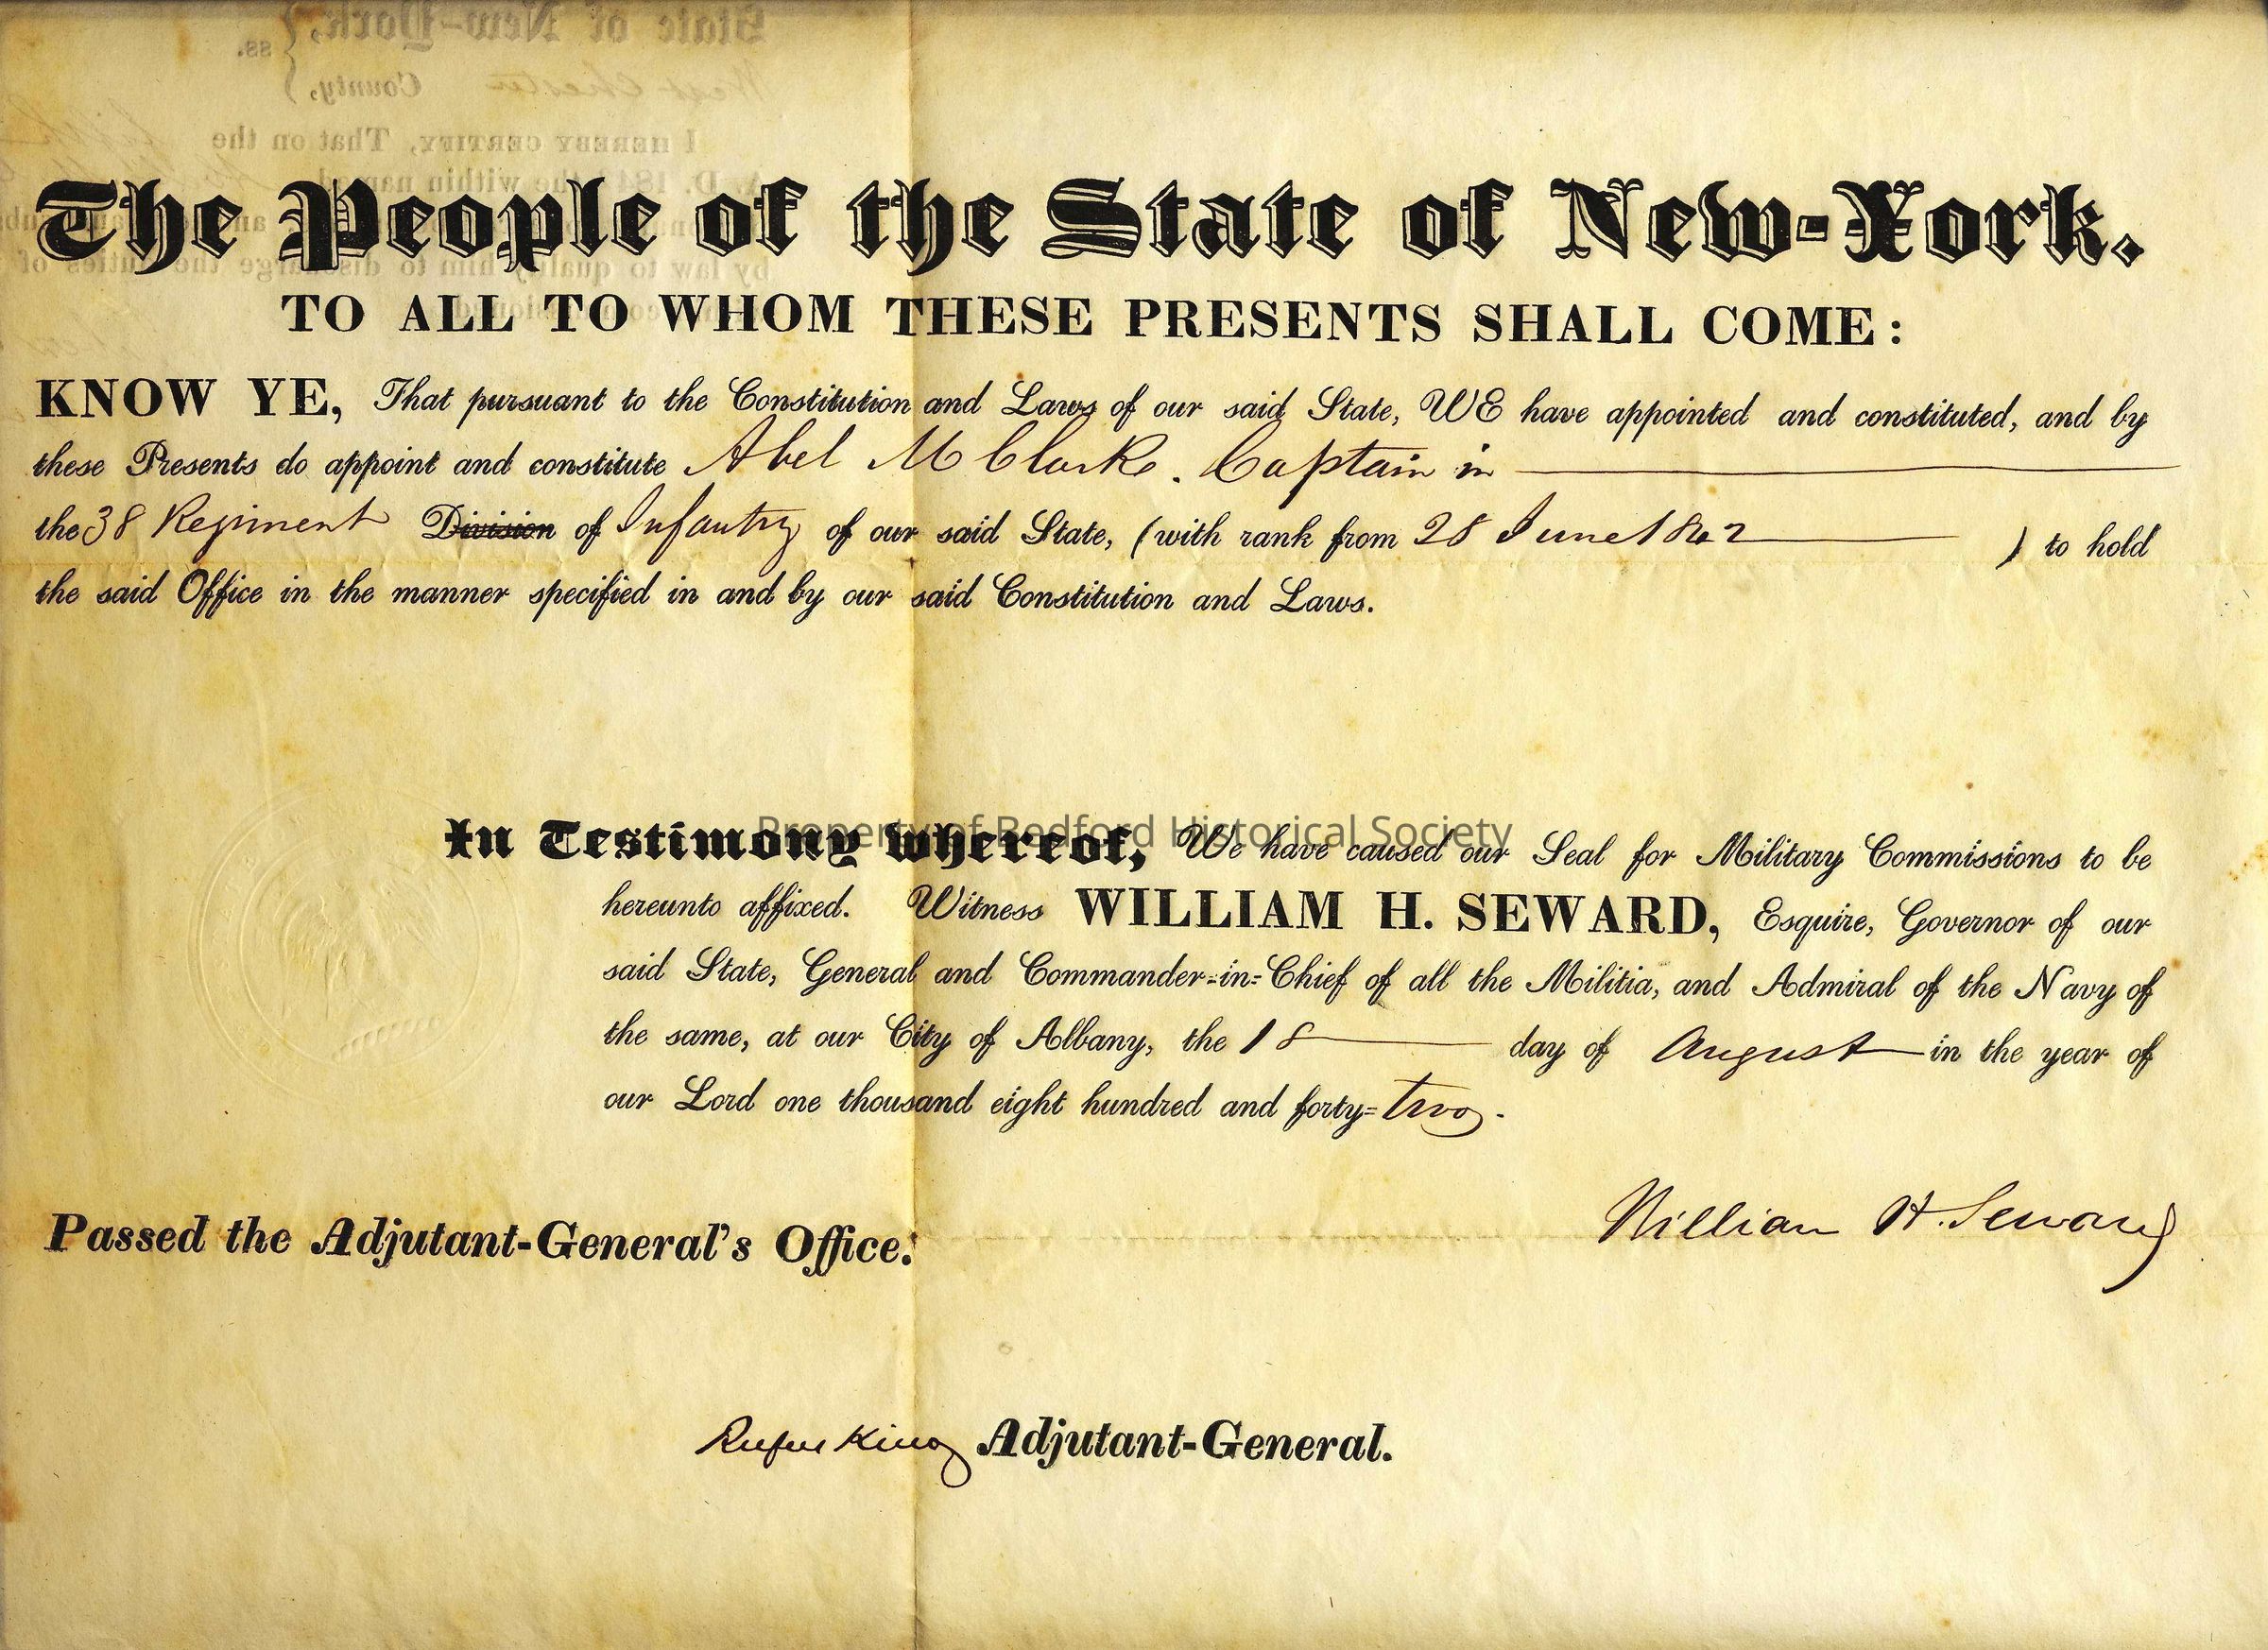 State of New-York,
ss.
West Chester County,
I HEREBY CERTIFY, That on the
A. D. 184 the within named
by law to qualify him to discharge the duties of
The People of the State of New-York.
TO ALL TO WHOM THESE PRESENTS SHALL COME:
KNOW YE, That pursuant to the Constitution and Laws of our said State, WE have appointed and constituted, and by
these Presents do appoint and constitute Abel M Clarke. Captain in
the 38 Regiment Division of Infantry of our said State, (with rank from 28 June 1842 ) to hold
the said Office in the manner specified in and by our said Constitution and Laws.
Property of Bedford Historical Society
In Testimony whereof, We have caused our Seal for Military Commissions to be
hereunto affixed. Witness WILLIAM H. SEWARD, Esquire, Governor of our
said State, General and Commander-in-Chief of all the Militia, and Admiral of the Navy of
the same, at our City of Albany, the 18 day of August in the year of
our Lord one thousand eight hundred and forty-two.
William H. Seward
Passed the Adjutant-General's Office.
Rufus King Adjutant-General.